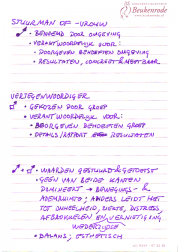 Beukenrode
STUURMAN OF -VROUW
• BENOEMD DOOR OMGEVING
• VERANTWOORDELIJK VOOR:
• DOORGEVEN BEHOEFTEN OMGEVING
• RESULTATEN, CONCREET & MEETBAAR
VERTEGENWOORDIGER
• GEKOZEN DOOR GROEP
• VERANTWOORDELIJK VOOR:
• DOORGEVEN BEHOEFTEN GROEP
• DETAILS/RAPPORT RESULTATEN
WAARDEN GESTUURD & GETOETST
• GEEN VAN BEIDE KANTEN
DOMINEERT → BEWEGINGS- &
ADEMRUIMTE; ANDERS LEIDT HET
TOT ONHEELHEID, ZIEKTE, DISTRESS,
AFBROKKELEN EN VERNIETIGING
WEDERZIJDS
• BALANS, ESTHETISCH